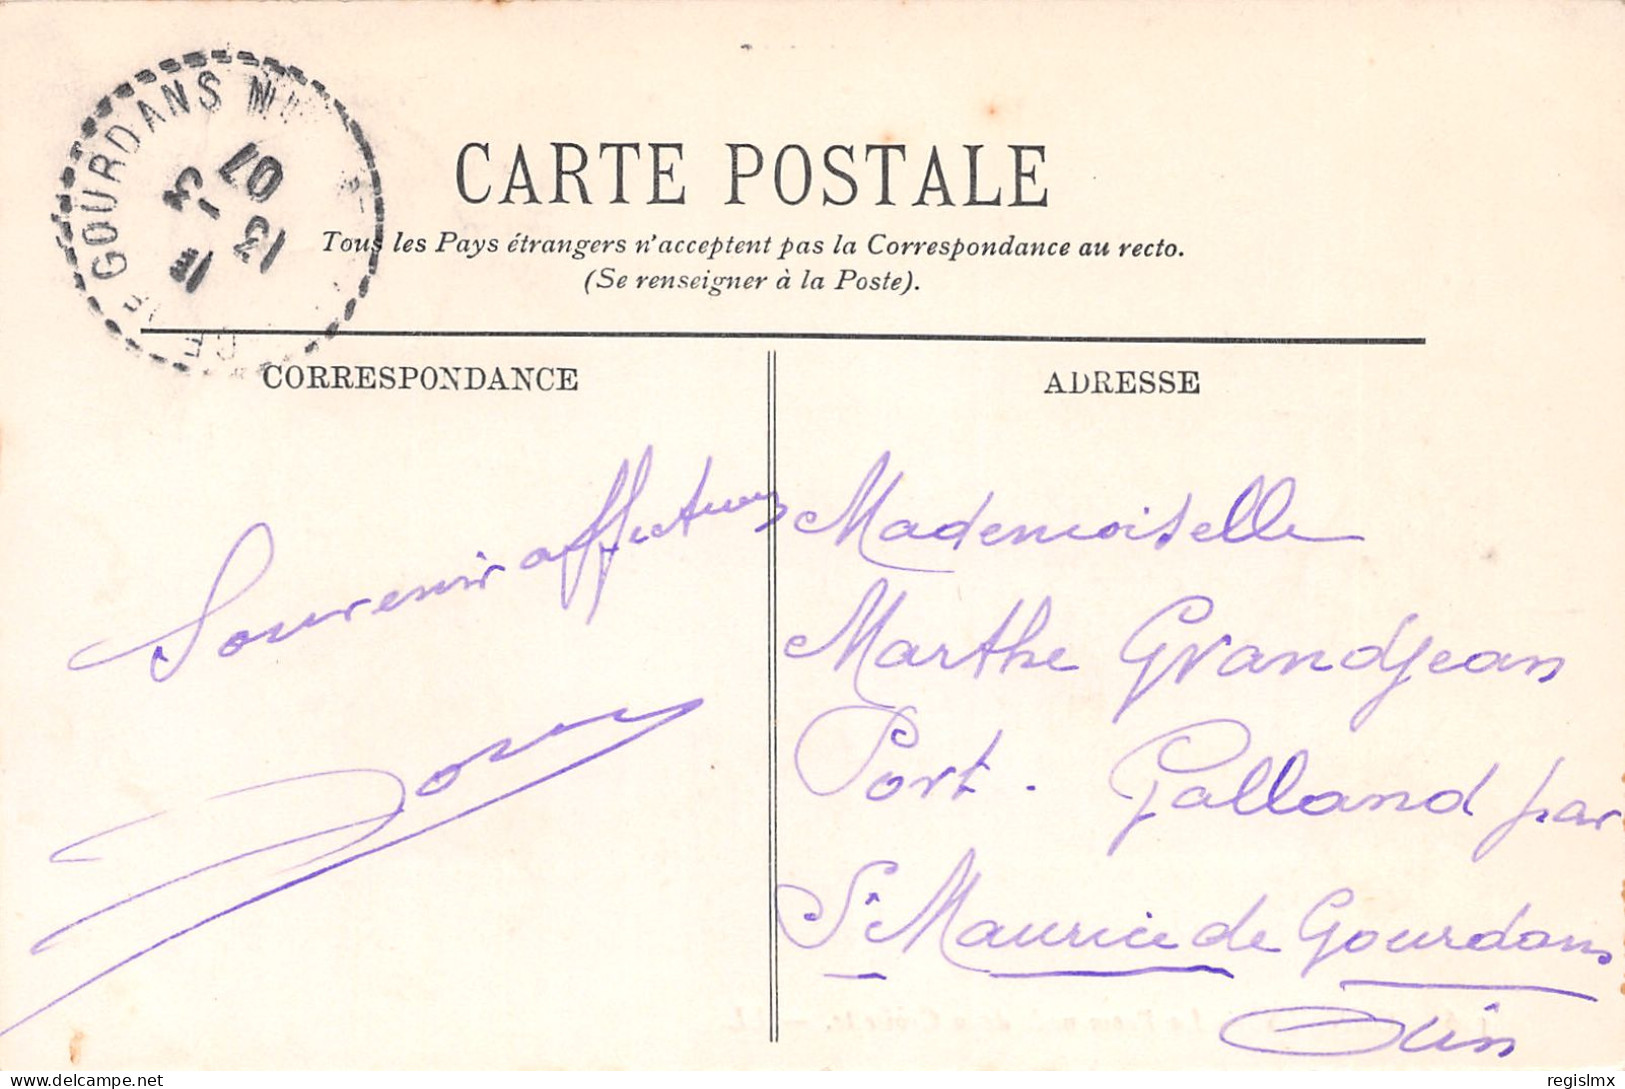 GOURDANS
1E
13 -3
07
CARTE POSTALE
Tous les Pays étrangers n'acceptent pas la Correspondance au recto.
(Se renseigner à la Poste).
CORRESPONDANCE
Souvenir affectueux
ADRESSE
Mademoiselle
Marthe Grandjean
Port. Galland par
St Maurice de Gourdans
Ain
regislmx